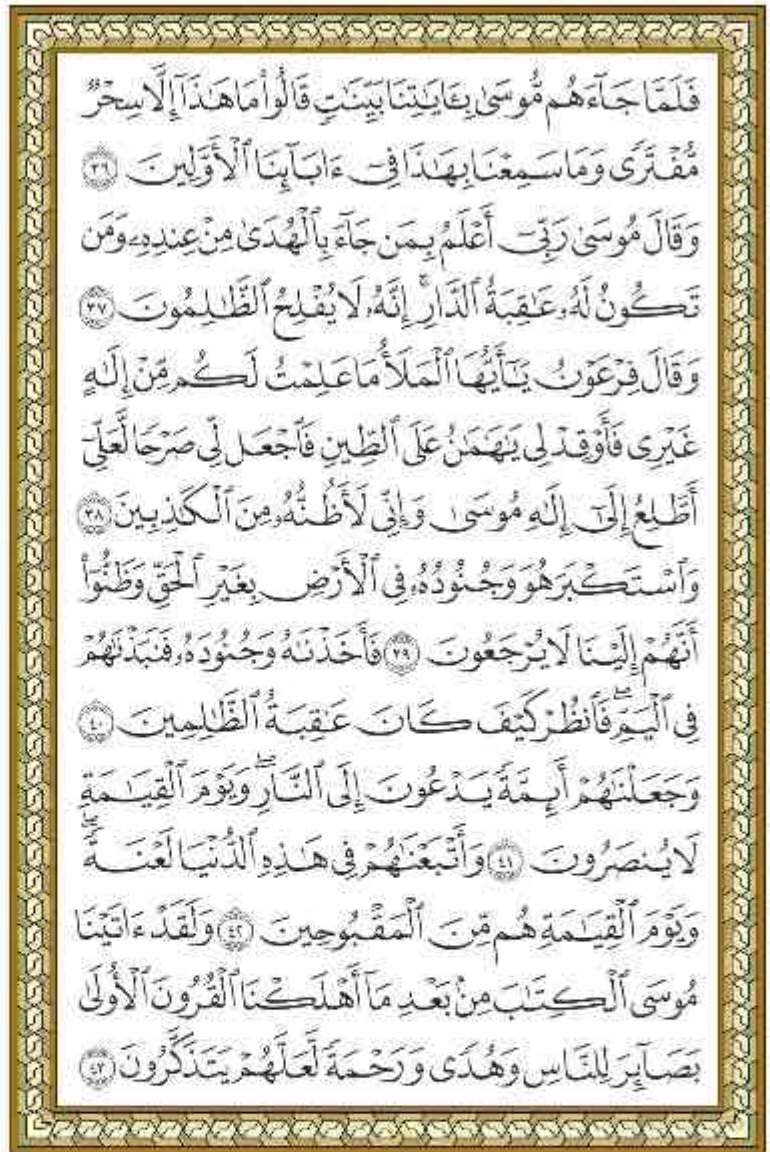 فَلَمَّا جَآءَهُم مُّوسَىٰ بِـَٔايَٰتِنَا بَيِّنَٰتٍ قَالُوا۟ مَا هَٰذَآ إِلَّا سِحْرٌ
مُّفْتَرًى وَمَا سَمِعْنَا بِهَٰذَا فِىٓ ءَابَآئِنَا ٱلْأَوَّلِينَ ٣٦
وَقَالَ مُوسَىٰ رَبِّىٓ أَعْلَمُ بِمَن جَآءَ بِٱلْهُدَىٰ مِنْ عِندِهِۦ وَمَن
تَكُونُ لَهُۥ عَٰقِبَةُ ٱلدَّارِ ۖ إِنَّهُۥ لَا يُفْلِحُ ٱلظَّٰلِمُونَ ٣٧
وَقَالَ فِرْعَوْنُ يَٰٓأَيُّهَا ٱلْمَلَأُ مَا عَلِمْتُ لَكُم مِّنْ إِلَٰهٍ
غَيْرِى فَأَوْقِدْ لِى يَٰهَٰمَٰنُ عَلَى ٱلطِّينِ فَٱجْعَل لِّى صَرْحًا لَّعَلِّىٓ
أَطَّلِعُ إِلَىٰٓ إِلَٰهِ مُوسَىٰ وَإِنِّى لَأَظُنُّهُۥ مِنَ ٱلْكَٰذِبِينَ ٣٨
وَٱسْتَكْبَرَ هُوَ وَجُنُودُهُۥ فِى ٱلْأَرْضِ بِغَيْرِ ٱلْحَقِّ وَظَنُّوٓا۟
أَنَّهُمْ إِلَيْنَا لَا يُرْجَعُونَ ٣٩ فَأَخَذْنَٰهُ وَجُنُودَهُۥ فَنَبَذْنَٰهُمْ
فِى ٱلْيَمِّ ۖ فَٱنظُرْ كَيْفَ كَانَ عَٰقِبَةُ ٱلظَّٰلِمِينَ ٤٠
وَجَعَلْنَٰهُمْ أَئِمَّةً يَدْعُونَ إِلَى ٱلنَّارِ ۖ وَيَوْمَ ٱلْقِيَٰمَةِ
لَا يُنصَرُونَ ٤١ وَأَتْبَعْنَٰهُمْ فِى هَٰذِهِ ٱلدُّنْيَا لَعْنَةً ۖ
وَيَوْمَ ٱلْقِيَٰمَةِ هُم مِّنَ ٱلْمَقْبُوحِينَ ٤٢ وَلَقَدْ ءَاتَيْنَا
مُوسَى ٱلْكِتَٰبَ مِنۢ بَعْدِ مَآ أَهْلَكْنَا ٱلْقُرُونَ ٱلْأُولَىٰ
بَصَآئِرَ لِلنَّاسِ وَهُدًى وَرَحْمَةً لَّعَلَّهُمْ يَتَذَكَّرُونَ ٤٣